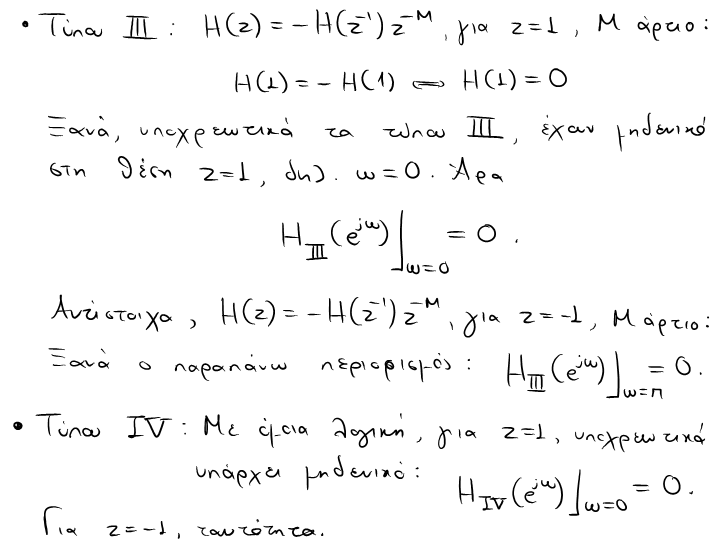 • Τύπου III : H(z) = - H(z⁻¹) z⁻ᴹ, για z=1, M άρτιο:
H(1) = - H(1) ⟺ H(1) = 0
Ξανά, υποχρεωτικά τα τύπου III, έχουν μηδενικό
στη θέση z=1, δηλ. ω=0. Άρα
H_III(e^{jω})|_{ω=0} = 0 .
Αντίστοιχα, H(z) = - H(z⁻¹) z⁻ᴹ, για z=-1, M άρτιο:
Ξανά ο παραπάνω περιορισμός: H_III(e^{jω})|_{ω=π} = 0.
• Τύπου IV : Με όμοια λογική, για z=1, υποχρεωτικά
υπάρχει μηδενικό: H_IV(e^{jω})|_{ω=0} = 0.
Για z=-1, ταυτότητα.